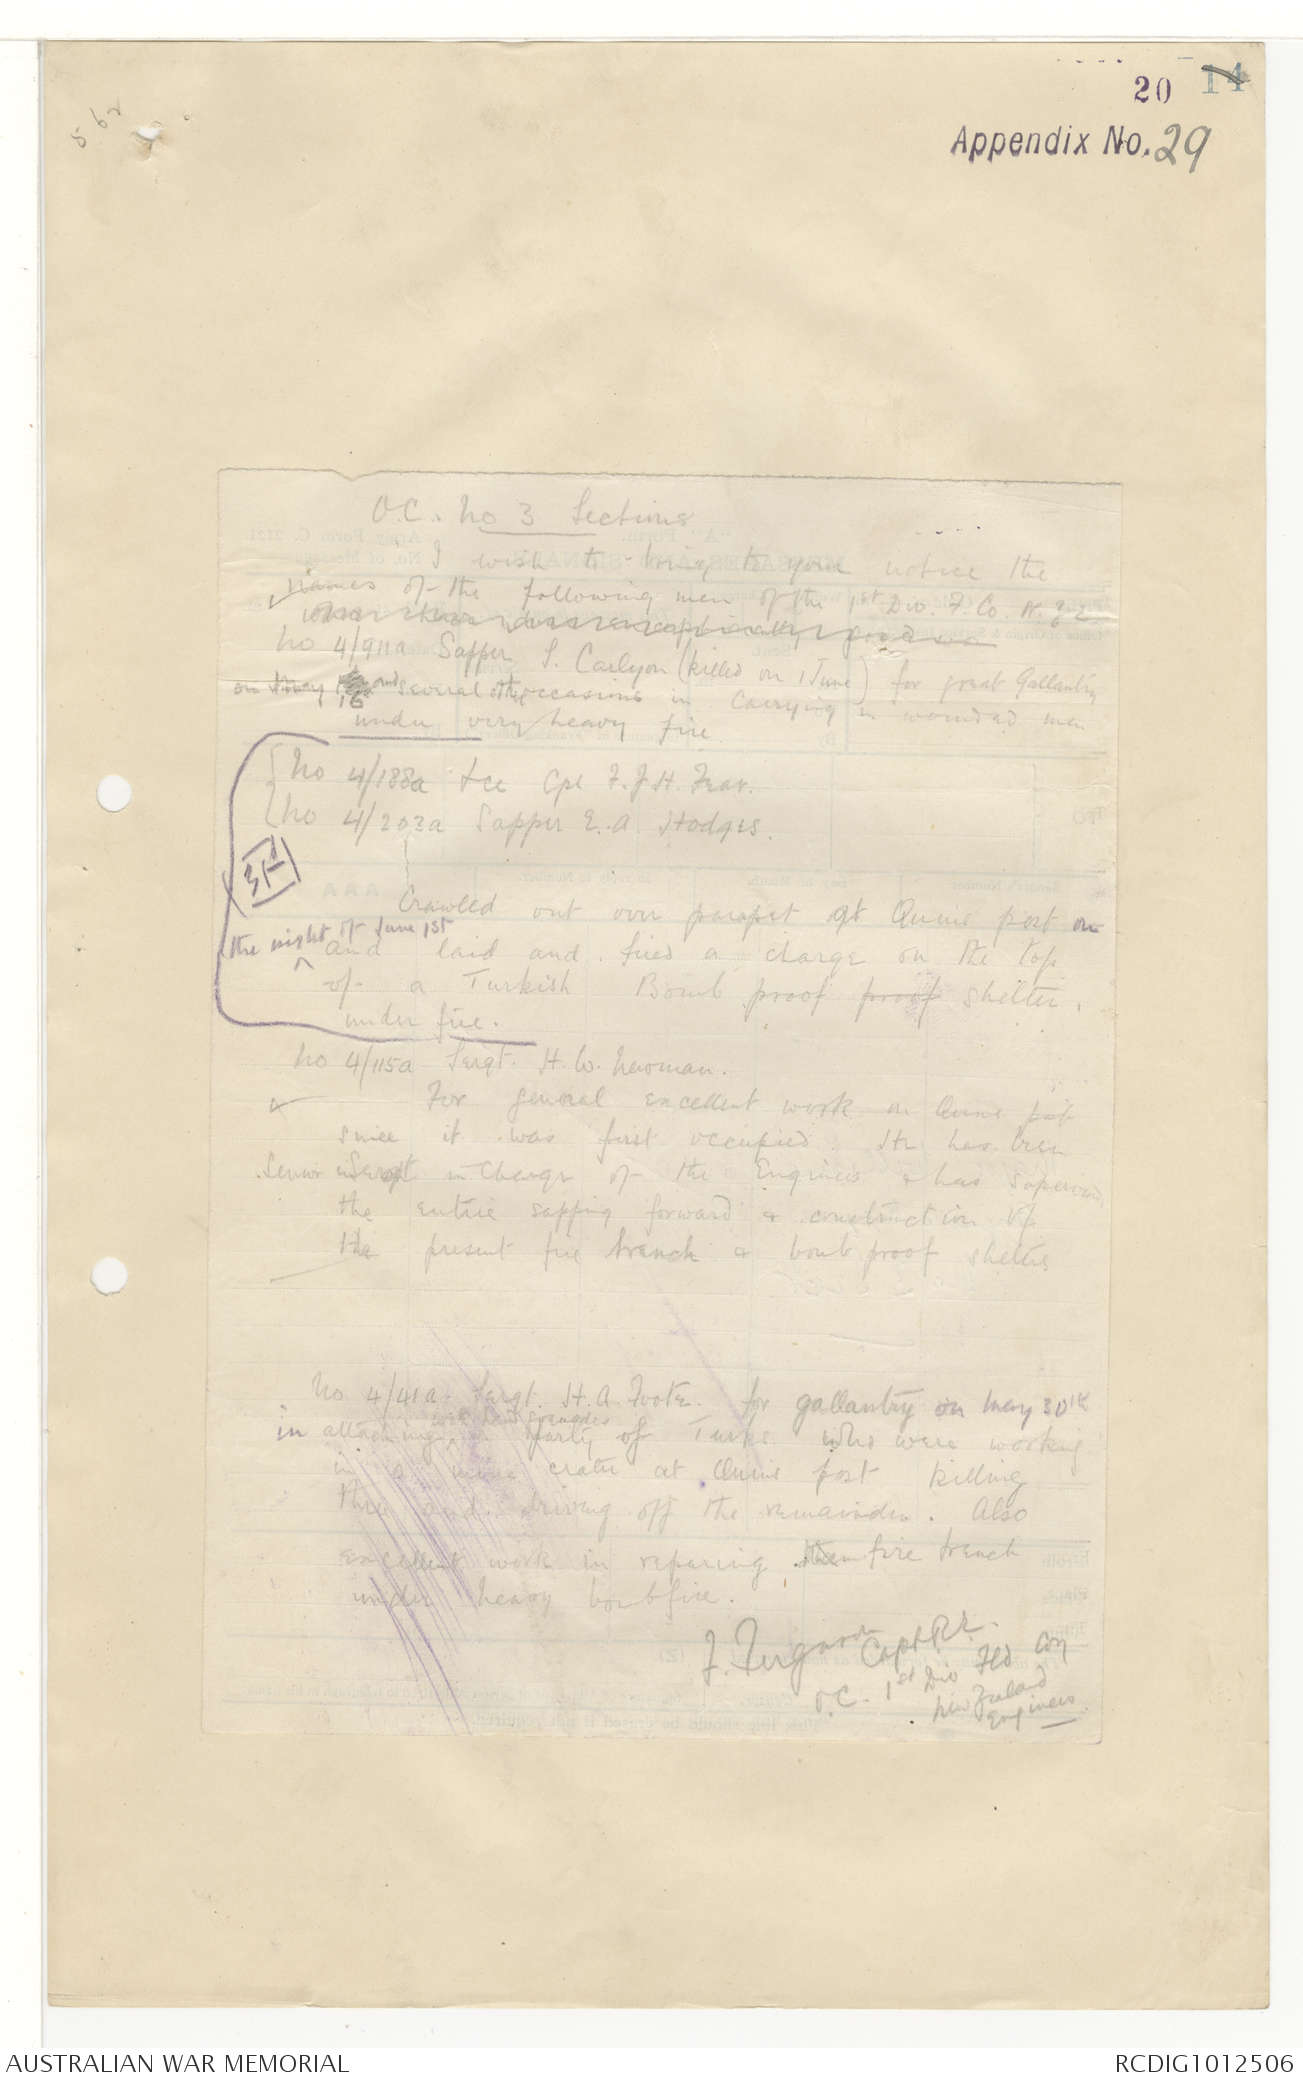 562
20 14
Appendix No. 29
O.C. No 3 Sections
I wish to bring to your notice the
names of the following men of the 1st Div. F. Co. N.Z.E.
No 4/911a Sapper S. Carlyon (killed on 1 June) for great Gallantry
on May 16 and several other occasions in carrying in wounded men
under very heavy fire.
No 4/188a Lce Cpl F.J.H. Fear.
No 4/203a Sapper E.A. Hodges.
Crawled out over parapet at Quins post on
the night of June 1st
and laid and fired a charge on the top
of a Turkish Bomb proof proof shelter.
under fire.
No 4/115a Sergt. H.W. Newman.
For general excellent work on Quins post
since it was first occupied. He has been
Senior Sergt in Charge of the Engineers & has supervised
the entire sapping forward & construction of
the present fire trench & bomb proof shelters
No 4/41a Sergt. H.A. Foote. for gallantry on May 30th
with hand grenades
in attacking a party of Turks who were working
in a mine crater at Quins post killing
three and driving off the remainder. Also
excellent work in reparing the fire trench
under heavy bomb fire.
F. Ferguson Capt R.E.
O.C. 1st Div Fld Coy
New Zealand
Engineers
AUSTRALIAN WAR MEMORIAL
RCDIG1012506